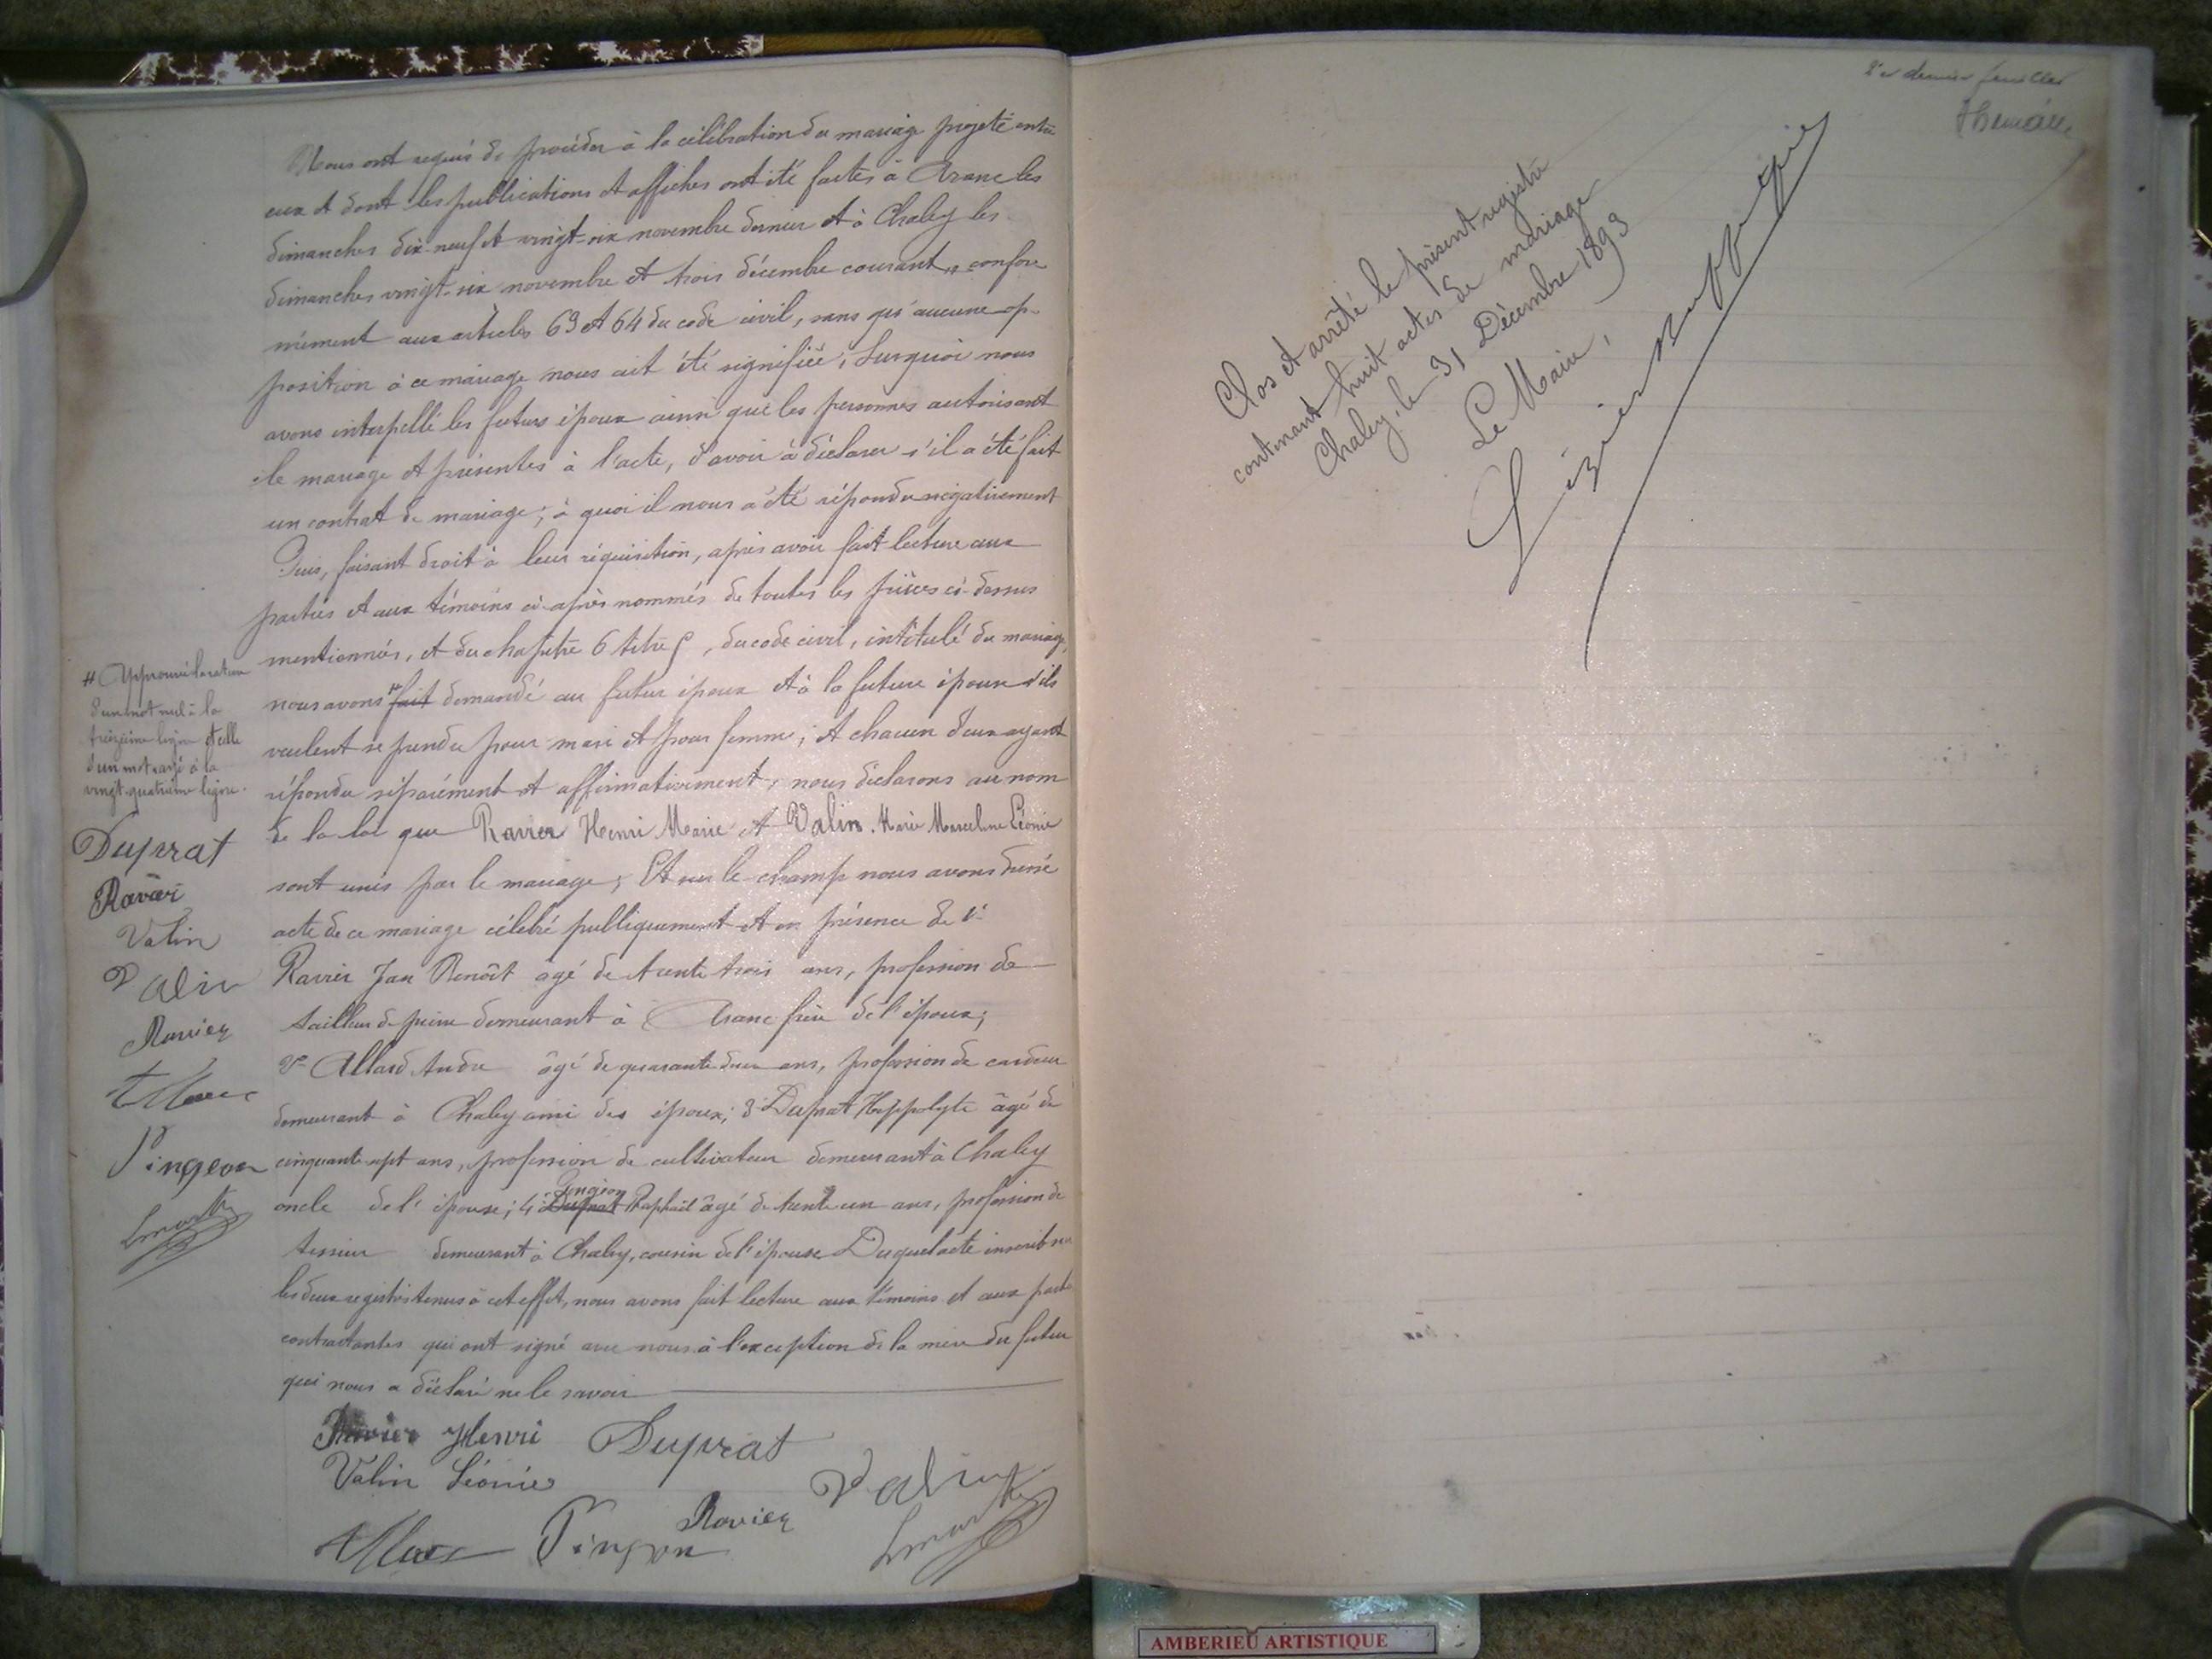 Nous ont requis de procéder à la célébration du mariage projeté entre
eux et dont les publications et affiches ont été faites à Aranc les
dimanches dix-neuf et vingt-six novembre dernier et à Chaley les
dimanches vingt-six novembre et trois décembre courant, confor
mément aux articles 63 et 64 du code civil, sans qu'aucune op-
position à ce mariage nous ait été signifiée, Surquoi nous
avons interpellé les futurs époux ainsi que les personnes autorisant
le mariage et présentes à l'acte, d'avoir à déclarer s'il a été fait
un contrat de mariage; à quoi il nous a été répondu négativement
Puis, faisant droit à leur réquisition, après avoir fait lecture aux
parties et aux témoins ci-après nommés de toutes les pièces ci-dessus
mentionnées, et du chapitre 6 titre 5, du code civil, intitulé du mariage,
nous avons fait demandé au futur époux et à la future épouse s'ils
veulent se prendre pour mari et pour femme; et chacun d'eux ayant
répondu séparément et affirmativement, nous déclarons au nom
de la loi que Ravier Henri Marie et Valin Marie Marceline Léonie
sont unis par le mariage; Et sur le champ nous avons dressé
acte de ce mariage célébré publiquement et en présence de 1°
Ravier Jean Benoît âgé de trente trois ans, profession de
tailleur de pierre demeurant à Aranc frère de l'époux;
2° Allard André âgé de quarante deux ans, profession de cardeur
demeurant à Chaley ami des époux; 3° Duprat Hippolyte âgé de
cinquante sept ans, profession de cultivateur demeurant à Chaley
Pingeon
oncle de l'épouse; 4° Duprat Raphaël âgé de trente un ans, profession de
tisseur demeurant à Chaley, cousin de l'épouse Duquel acte inscrit sur
les deux registres tenus à cet effet, nous avons fait lecture aux témoins et aux parties
contractantes qui ont signé avec nous à l'exception de la mère du futur
qui nous a déclaré ne le savoir
Ravier Henri Duprat
Valin Léonie Valin
Ravier
Pingeon
# Approuvé la rature
d'un mot nul à la
treizième ligne et celle
d'un mot rayé à la
vingt-quatrième ligne.
Duprat
Ravier
Valin
Valin
Ravier
Pingeon
dernier feuillet
Clos et arrêté le présent registre
contenant huit actes de mariage
Chaley, le 31 Décembre 1893
Le Maire,
AMBERIEU ARTISTIQUE